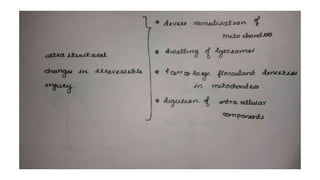 * severe vacuolisation of
mitochondria
ultra structural
changes in irreversible
injury.
* swelling of lysosomes
* large flocculant densities
in mitochondria.
* digestion of intra cellular
components